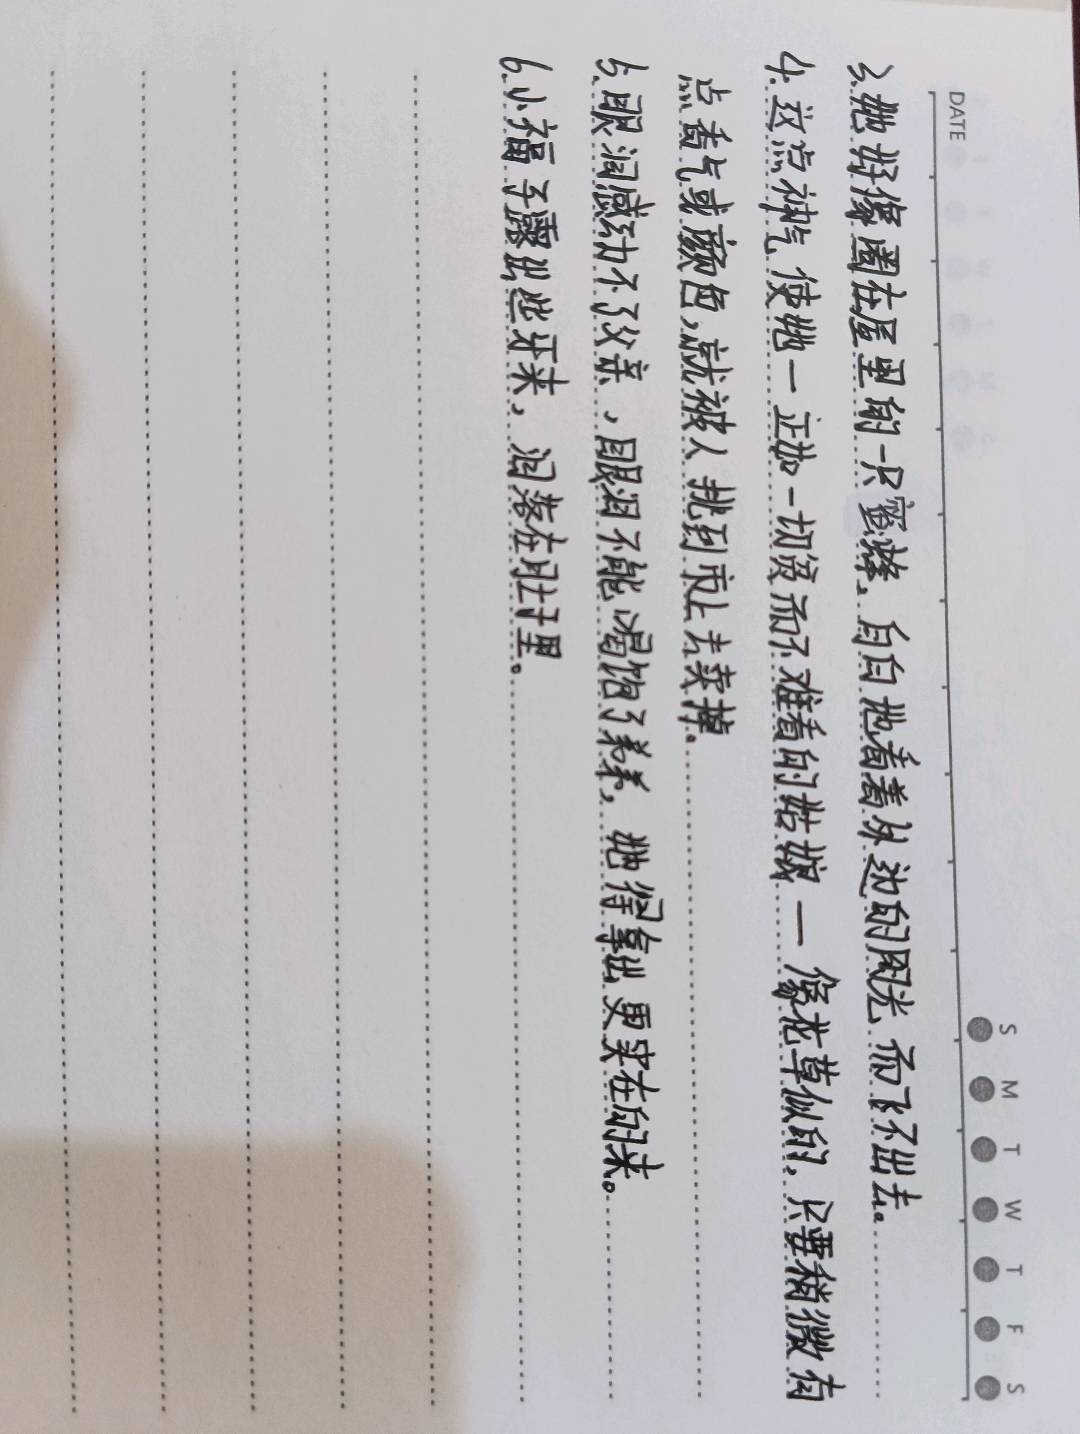 DATE
S M T W T F S
3.她好像圈在屋里的一只蜜蜂，白白地看着外边的风光而飞不出去。
4.这点神气使她——正如一切贫而不难看的姑娘——像花草似的，只要稍微有
点香气或颜色，就被人挑到市上去卖掉。
5.眼泪感动不了父亲，眼泪不能喝饱了弟弟，她得拿出更实在的来。
6.小福子露出些牙来，泪落在肚子里。